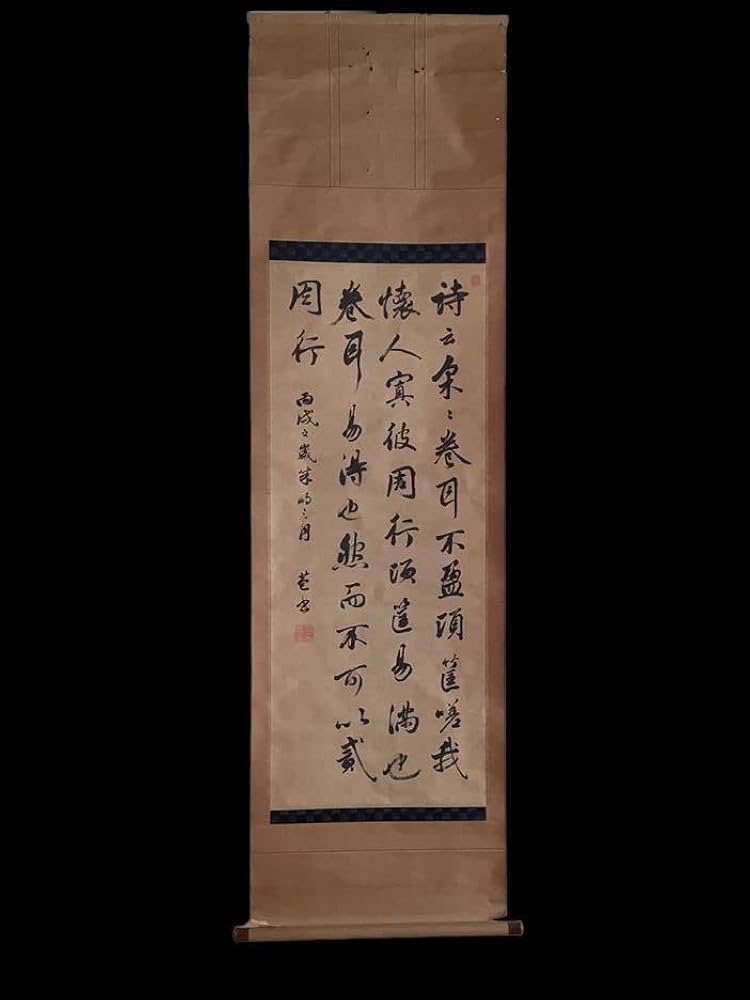 詩云采〻卷耳不盈頃筐嗟我
懷人寘彼周行頃筐易滿也
卷耳易得也然而不可以貳
周行
丙戌之歲朱明之月 書